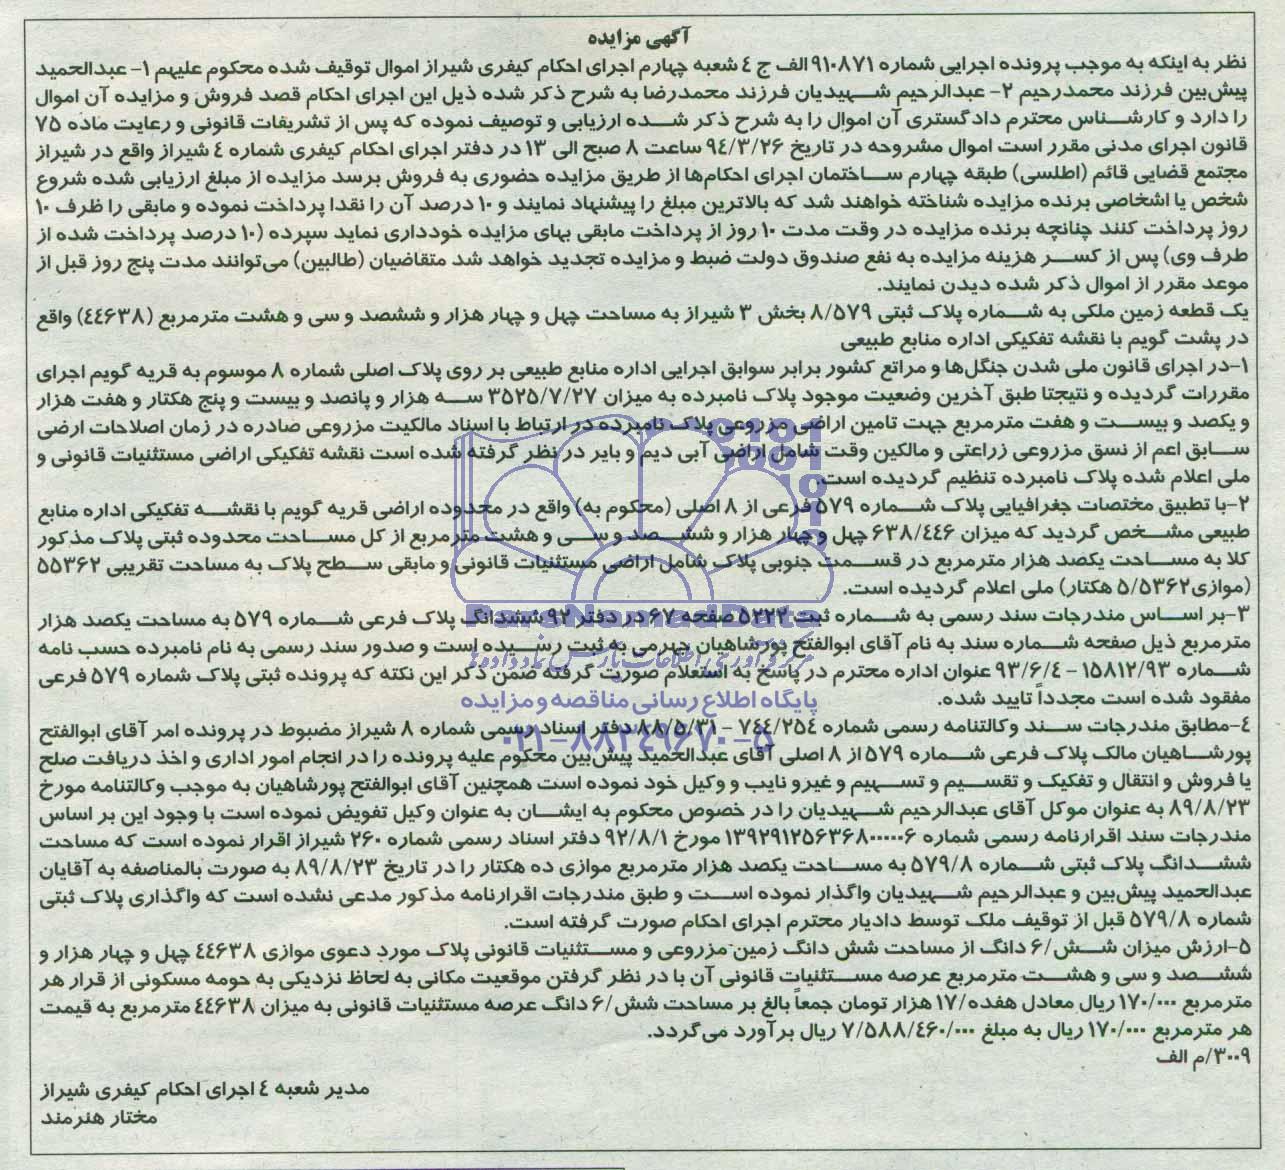 آگهی مزایده
نظر به اینکه به موجب پرونده اجرایی شماره ۹۱۰۸۷۱ الف ج ٤ شعبه چهارم اجرای احکام کیفری شیراز اموال توقیف شده محکوم علیهم ۱- عبدالحمید
پیش‌بین فرزند محمدرحیم ۲- عبدالرحیم شهیدیان فرزند محمدرضا به شرح ذکر شده ذیل این اجرای احکام قصد فروش و مزایده آن اموال
را دارد و کارشناس محترم دادگستری آن اموال را به شرح ذکر شده ارزیابی و توصیف نموده که پس از تشریفات قانونی و رعایت ماده ۷۵
قانون اجرای مدنی مقرر است اموال مشروحه در تاریخ ۹٤/۳/۲۶ ساعت ۸ صبح الی ۱۳ در دفتر اجرای احکام کیفری شماره ٤ شیراز واقع در شیراز
مجتمع قضایی قائم (اطلسی) طبقه چهارم ساختمان اجرای احکام‌ها از طریق مزایده حضوری به فروش برسد مزایده از مبلغ ارزیابی شده شروع
شخص یا اشخاصی برنده مزایده شناخته خواهند شد که بالاترین مبلغ را پیشنهاد نمایند و ۱۰ درصد آن را نقدا پرداخت نموده و مابقی را ظرف ۱۰
روز پرداخت کنند چنانچه برنده مزایده در وقت مدت ۱۰ روز از پرداخت مابقی بهای مزایده خودداری نماید سپرده (۱۰ درصد پرداخت شده از
طرف وی) پس از کسر هزینه مزایده به نفع صندوق دولت ضبط و مزایده تجدید خواهد شد متقاضیان (طالبین) می‌توانند مدت پنج روز قبل از
موعد مقرر از اموال ذکر شده دیدن نمایند.
یک قطعه زمین ملکی به شماره پلاک ثبتی ۸/۵۷۹ بخش ۳ شیراز به مساحت چهل و چهار هزار و ششصد و سی و هشت مترمربع (٤٤۶۳۸) واقع
در پشت گویم با نقشه تفکیکی اداره منابع طبیعی
۱-در اجرای قانون ملی شدن جنگل‌ها و مراتع کشور برابر سوابق اجرایی اداره منابع طبیعی بر روی پلاک اصلی شماره ۸ موسوم به قریه گویم اجرای
مقررات گردیده و نتیجتا طبق آخرین وضعیت موجود پلاک نامبرده به میزان ۳۵۲۵/۷/۲۷ سه هزار و پانصد و بیست و پنج هکتار و هفت هزار
و یکصد و بیست و هفت مترمربع جهت تامین اراضی مزروعی پلاک نامبرده در ارتباط با اسناد مالکیت مزروعی صادره در زمان اصلاحات ارضی
سابق اعم از نسق مزروعی زراعتی و مالکین وقت شامل اراضی آبی دیم و بایر در نظر گرفته شده است نقشه تفکیکی اراضی مستثنیات قانونی و
ملی اعلام شده پلاک نامبرده تنظیم گردیده است.
۲-با تطبیق مختصات جغرافیایی پلاک شماره ۵۷۹ فرعی از ۸ اصلی (محکوم به) واقع در محدوده اراضی قریه گویم با نقشه تفکیکی اداره منابع
طبیعی مشخص گردید که میزان ۶۳۸/٤٤۶ چهل و چهار هزار و ششصد و سی و هشت مترمربع از کل مساحت محدوده ثبتی پلاک مذکور
کلا به مساحت یکصد هزار مترمربع در قسمت جنوبی پلاک شامل اراضی مستثنیات قانونی و مابقی سطح پلاک به مساحت تقریبی ۵۵۳۶۲
(موازی۵/۵۳۶۲ هکتار) ملی اعلام گردیده است.
۳-بر اساس مندرجات سند رسمی به شماره ثبت ۵۲۲۲ صفحه ۶۷ در دفتر ۹۲ ششدانگ پلاک فرعی شماره ۵۷۹ به مساحت یکصد هزار
مترمربع ذیل صفحه شماره سند به نام آقای ابوالفتح پورشاهیان جهرمی به ثبت رسیده است و صدور سند رسمی به نام نامبرده حسب نامه
شماره ۱۵۸۱۲/۹۳ - ۹۳/۶/٤ عنوان اداره محترم در پاسخ به استعلام صورت گرفته ضمن ذکر این نکته که پرونده ثبتی پلاک شماره ۵۷۹ فرعی
مفقود شده است مجدداً تایید شده.
٤-مطابق مندرجات سند وکالتنامه رسمی شماره ۷٤٤/۲۵٤ - ۸۸/۵/۳۱ دفتر اسناد رسمی شماره ۸ شیراز مضبوط در پرونده امر آقای ابوالفتح
پورشاهیان مالک پلاک فرعی شماره ۵۷۹ از ۸ اصلی آقای عبدالحمید پیش‌بین محکوم علیه پرونده را در انجام امور اداری و اخذ دریافت صلح
یا فروش و انتقال و تفکیک و تقسیم و تسهیم و غیرو نایب و وکیل خود نموده است همچنین آقای ابوالفتح پورشاهیان به موجب وکالتنامه مورخ
۸۹/۸/۲۳ به عنوان موکل آقای عبدالرحیم شهیدیان را در خصوص محکوم به ایشان به عنوان وکیل تفویض نموده است با وجود این بر اساس
مندرجات سند اقرارنامه رسمی شماره ۱۳۹۲۹۱۲۵۶۳۶۸۰۰۰۰۰۶ مورخ ۹۲/۸/۱ دفتر اسناد رسمی شماره ۲۶۰ شیراز اقرار نموده است که مساحت
ششدانگ پلاک ثبتی شماره ۵۷۹/۸ به مساحت یکصد هزار مترمربع موازی ده هکتار را در تاریخ ۸۹/۸/۲۳ به صورت بالمناصفه به آقایان
عبدالحمید پیش‌بین و عبدالرحیم شهیدیان واگذار نموده است و طبق مندرجات اقرارنامه مذکور مدعی نشده است که واگذاری پلاک ثبتی
شماره ۵۷۹/۸ قبل از توقیف ملک توسط دادیار محترم اجرای احکام صورت گرفته است.
۵-ارزش میزان شش/۶ دانگ از مساحت شش دانگ زمین مزروعی و مستثنیات قانونی پلاک مورد دعوی موازی ٤٤۶۳۸ چهل و چهار هزار و
ششصد و سی و هشت مترمربع عرصه مستثنیات قانونی آن با در نظر گرفتن موقعیت مکانی به لحاظ نزدیکی به حومه مسکونی از قرار هر
مترمربع ۱۷۰/۰۰۰ ریال معادل هفده/۱۷ هزار تومان جمعاً بالغ بر مساحت شش/۶ دانگ عرصه مستثنیات قانونی به میزان ٤٤۶۳۸ مترمربع به قیمت
هر مترمربع ۱۷۰/۰۰۰ ریال به مبلغ ۷/۵۸۸/٤۶۰/۰۰۰ ریال برآورد می‌گردد.
۳۰۰۹/م الف
مدیر شعبه ٤ اجرای احکام کیفری شیراز
مختار هنرمند
ParsNamadData
پایگاه اطلاع رسانی مناقصه و مزایده
۰۲۱-۸۸۳٤۹۶۷۰-۵